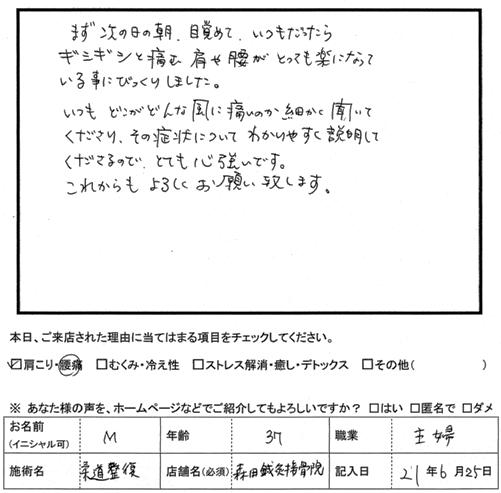 まず次の日の朝、目覚めて、いつもだったら
ギシギシと痛む肩や腰がとっても楽になって
いる事にびっくりしました。
いつもどこがどんな風に痛いのか細かく聞いて
くださり、その症状についてわかりやすく説明して
くださるので、とても心強いです。
これからもよろしくお願い致します。
本日、ご来店された理由に当てはまる項目をチェックしてください。
☑肩こり・腰痛 □むくみ・冷え性 □ストレス解消・癒し・デトックス □その他( )
※ あなた様の声を、ホームページなどでご紹介してもよろしいですか？ □はい □匿名で □ダメ
お名前(イニシャル可) M 年齢 37 職業 主婦
施術名 柔道整復 店舗名(必須) 森田鍼灸接骨院 記入日 21年6月25日